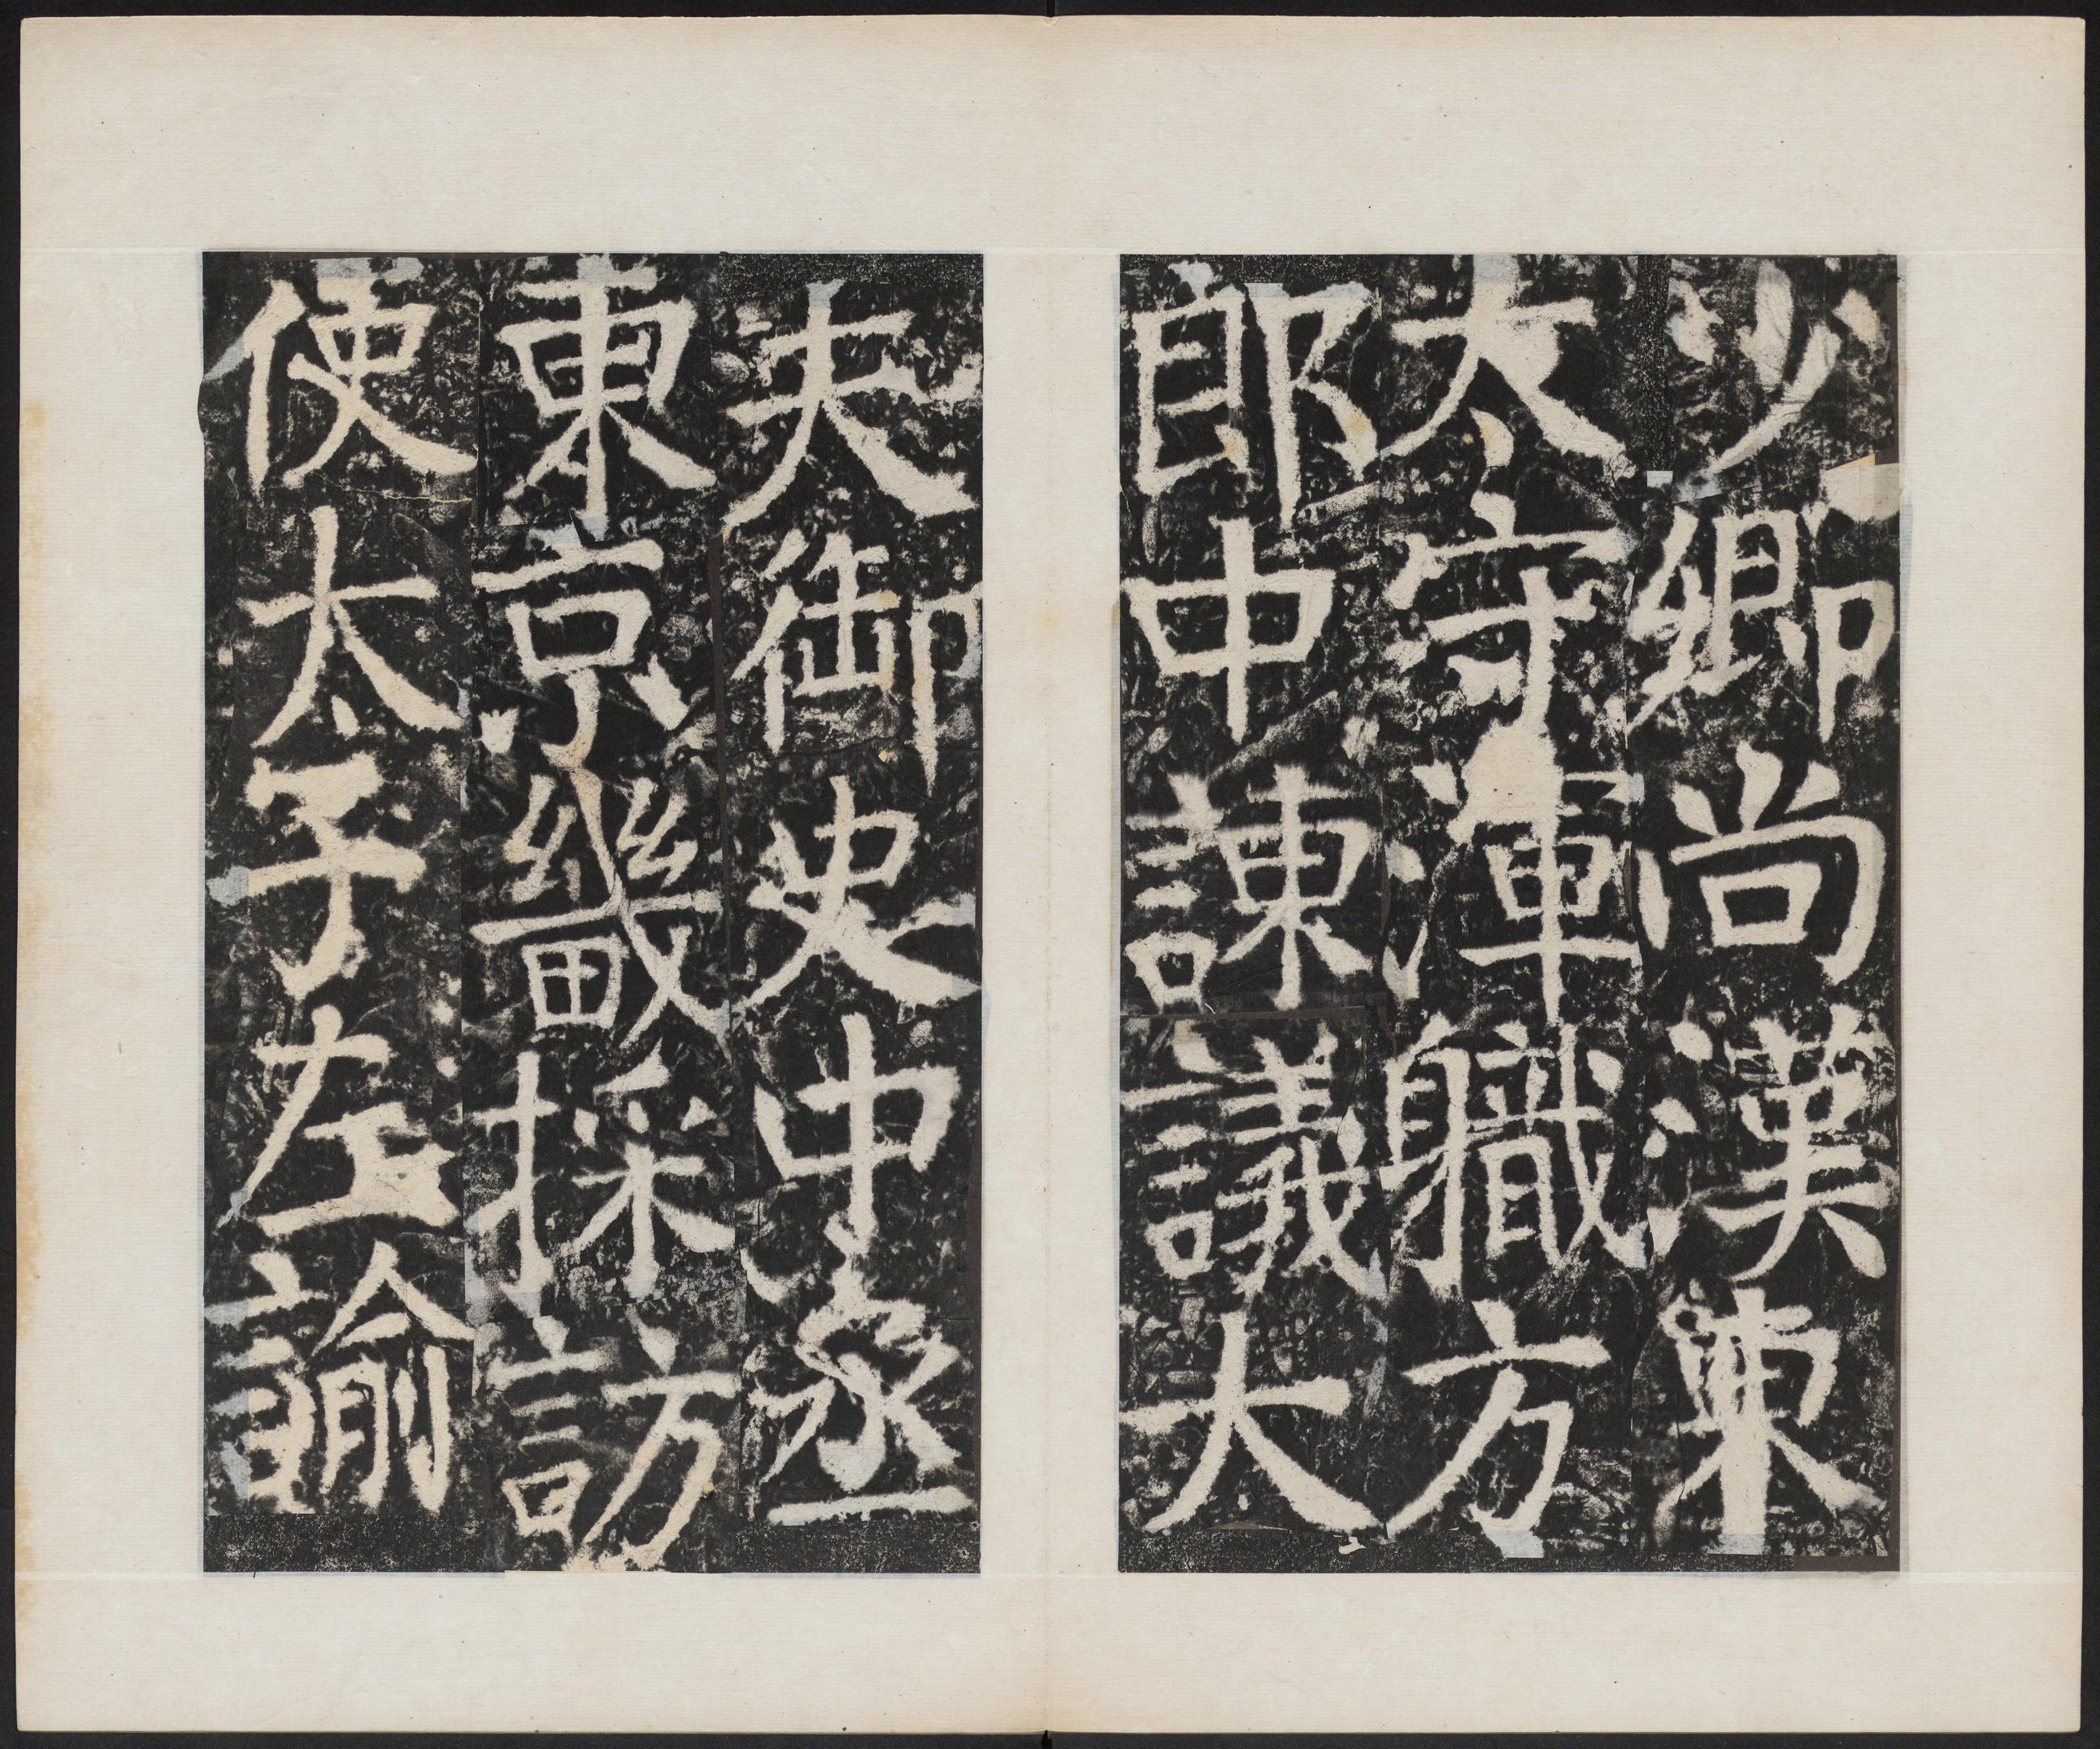 少卿尚漢東
太守渾職方
郎中諫議大
夫御史中丞
東京畿採訪
使太子左諭